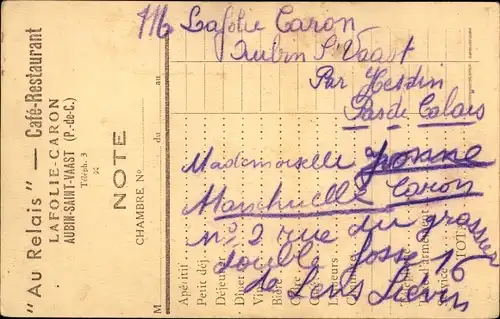 M Lafolie Caron
Aubin St Vaast
Par Hesdin
Pas de Calais
Mademoiselle Yvonne
Caron
N° 2 rue du
double fosse 16
de Lens Lievin
"Au Relais" — Café-Restaurant
LAFOLIE-CARON
AUBIN-SAINT-VAAST (P.-de-C.)
Téléph. 3
NOTE
CHAMBRE No
M
du
au
Apéritif
Petit déj.
Déjeuner
Dîner
Vin
Bière